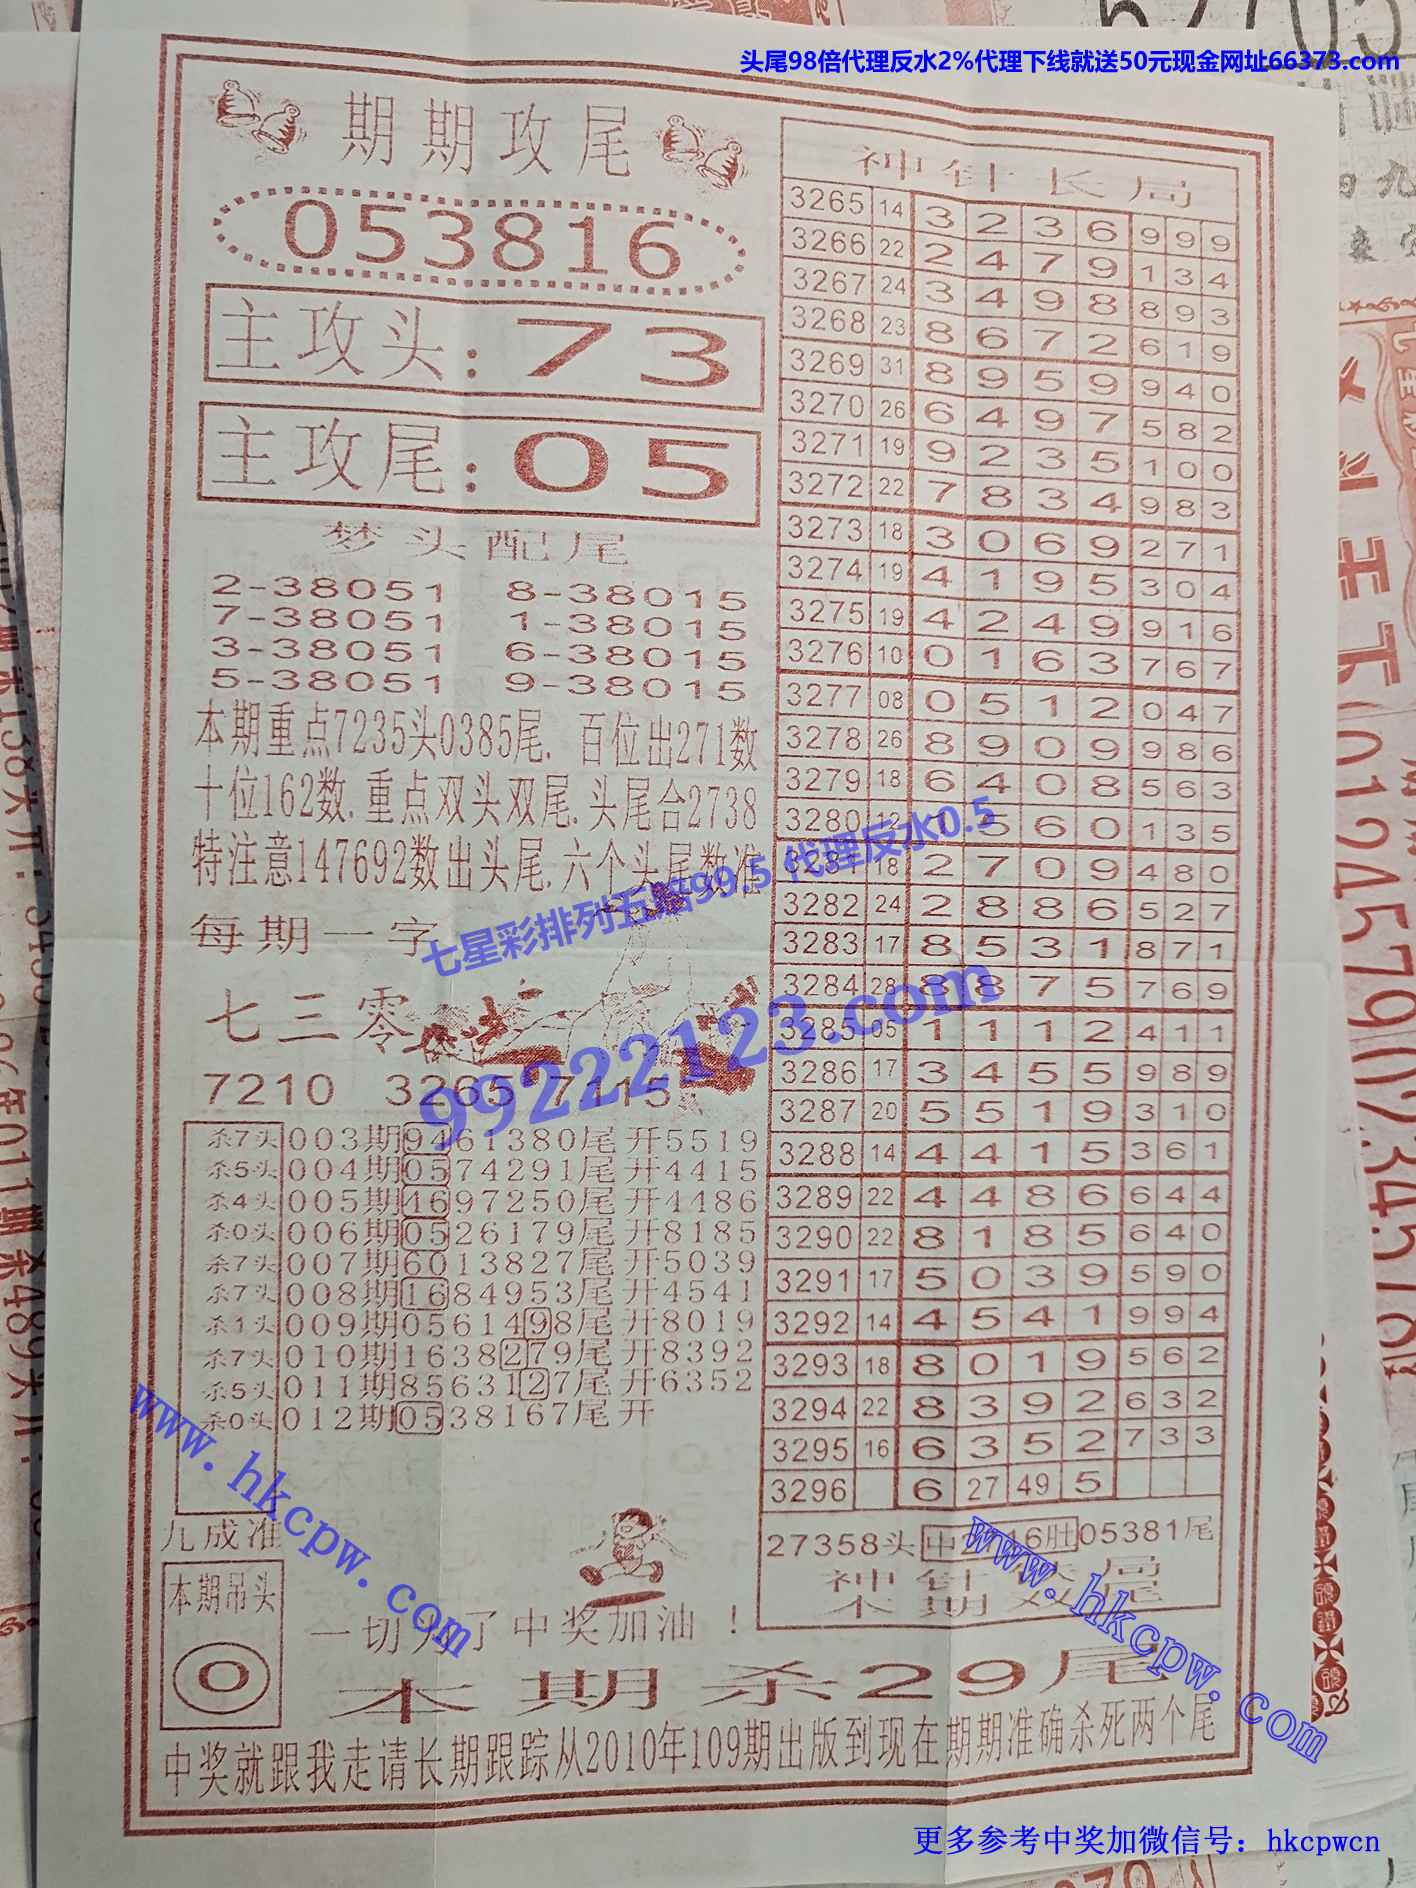 头尾98倍代理反水2%代理下线就送50元现金网址66373.com
期期攻尾
053816
主攻头:73
主攻尾:05
梦头配尾
2-38051 8-38015
7-38051 1-38015
3-38051 6-38015
5-38051 9-38015
本期重点7235头0385尾. 百位出271数
十位162数.重点双头双尾.头尾合2738
特注意147692数出头尾.六个头尾数准
每期一字
七三零
7210 3265 7115
杀7头 003期9461380尾开5519
杀5头 004期0574291尾开4415
杀4头 005期4697250尾开4486
杀0头 006期0526179尾开8185
杀7头 007期6013827尾开5039
杀7头 008期1684953尾开4541
杀1头 009期0561498尾开8019
杀7头 010期1638279尾开8392
杀5头 011期8563127尾开6352
杀0头 012期0538167尾开
九成准
本期吊头
0
一切为了中奖加油！
神针长局
3265 14 3 2 3 6 9 9 9
3266 22 2 4 7 9 1 3 4
3267 24 3 4 9 8 8 9 3
3268 23 8 6 7 2 6 1 9
3269 31 8 9 5 9 9 4 0
3270 26 6 4 9 7 5 8 2
3271 19 9 2 3 5 1 0 0
3272 22 7 8 3 4 9 8 3
3273 18 3 0 6 9 2 7 1
3274 19 4 1 9 5 3 0 4
3275 19 4 2 4 9 9 1 6
3276 10 0 1 6 3 7 6 7
3277 08 0 5 1 2 0 4 7
3278 26 8 9 0 9 9 8 6
3279 18 6 4 0 8 5 6 3
3280 12 1 5 6 0 1 3 5
3281 18 2 7 0 9 4 8 0
3282 24 2 8 8 6 5 2 7
3283 17 8 5 3 1 8 7 1
3284 28 8 8 7 5 7 6 9
3285 05 1 1 1 2 4 1 1
3286 17 3 4 5 5 9 8 9
3287 20 5 5 1 9 3 1 0
3288 14 4 4 1 5 3 6 1
3289 22 4 4 8 6 6 4 4
3290 22 8 1 8 5 6 4 0
3291 17 5 0 3 9 5 9 0
3292 14 4 5 4 1 9 9 4
3293 18 8 0 1 9 5 6 2
3294 22 8 3 9 2 6 3 2
3295 16 6 3 5 2 7 3 3
3296 6 27 49 5
27358头 中 16肚05381尾
神针 局
本期双尾
本期杀29尾
中奖就跟我走请长期跟踪从2010年109期出版到现在期期准确杀死两个尾
七星彩排列五赔99.5 代理反水0.5
99222123.com
www.hkcpw.com
www.hkcpw.com
更多参考中奖加微信号：hkcpwcn